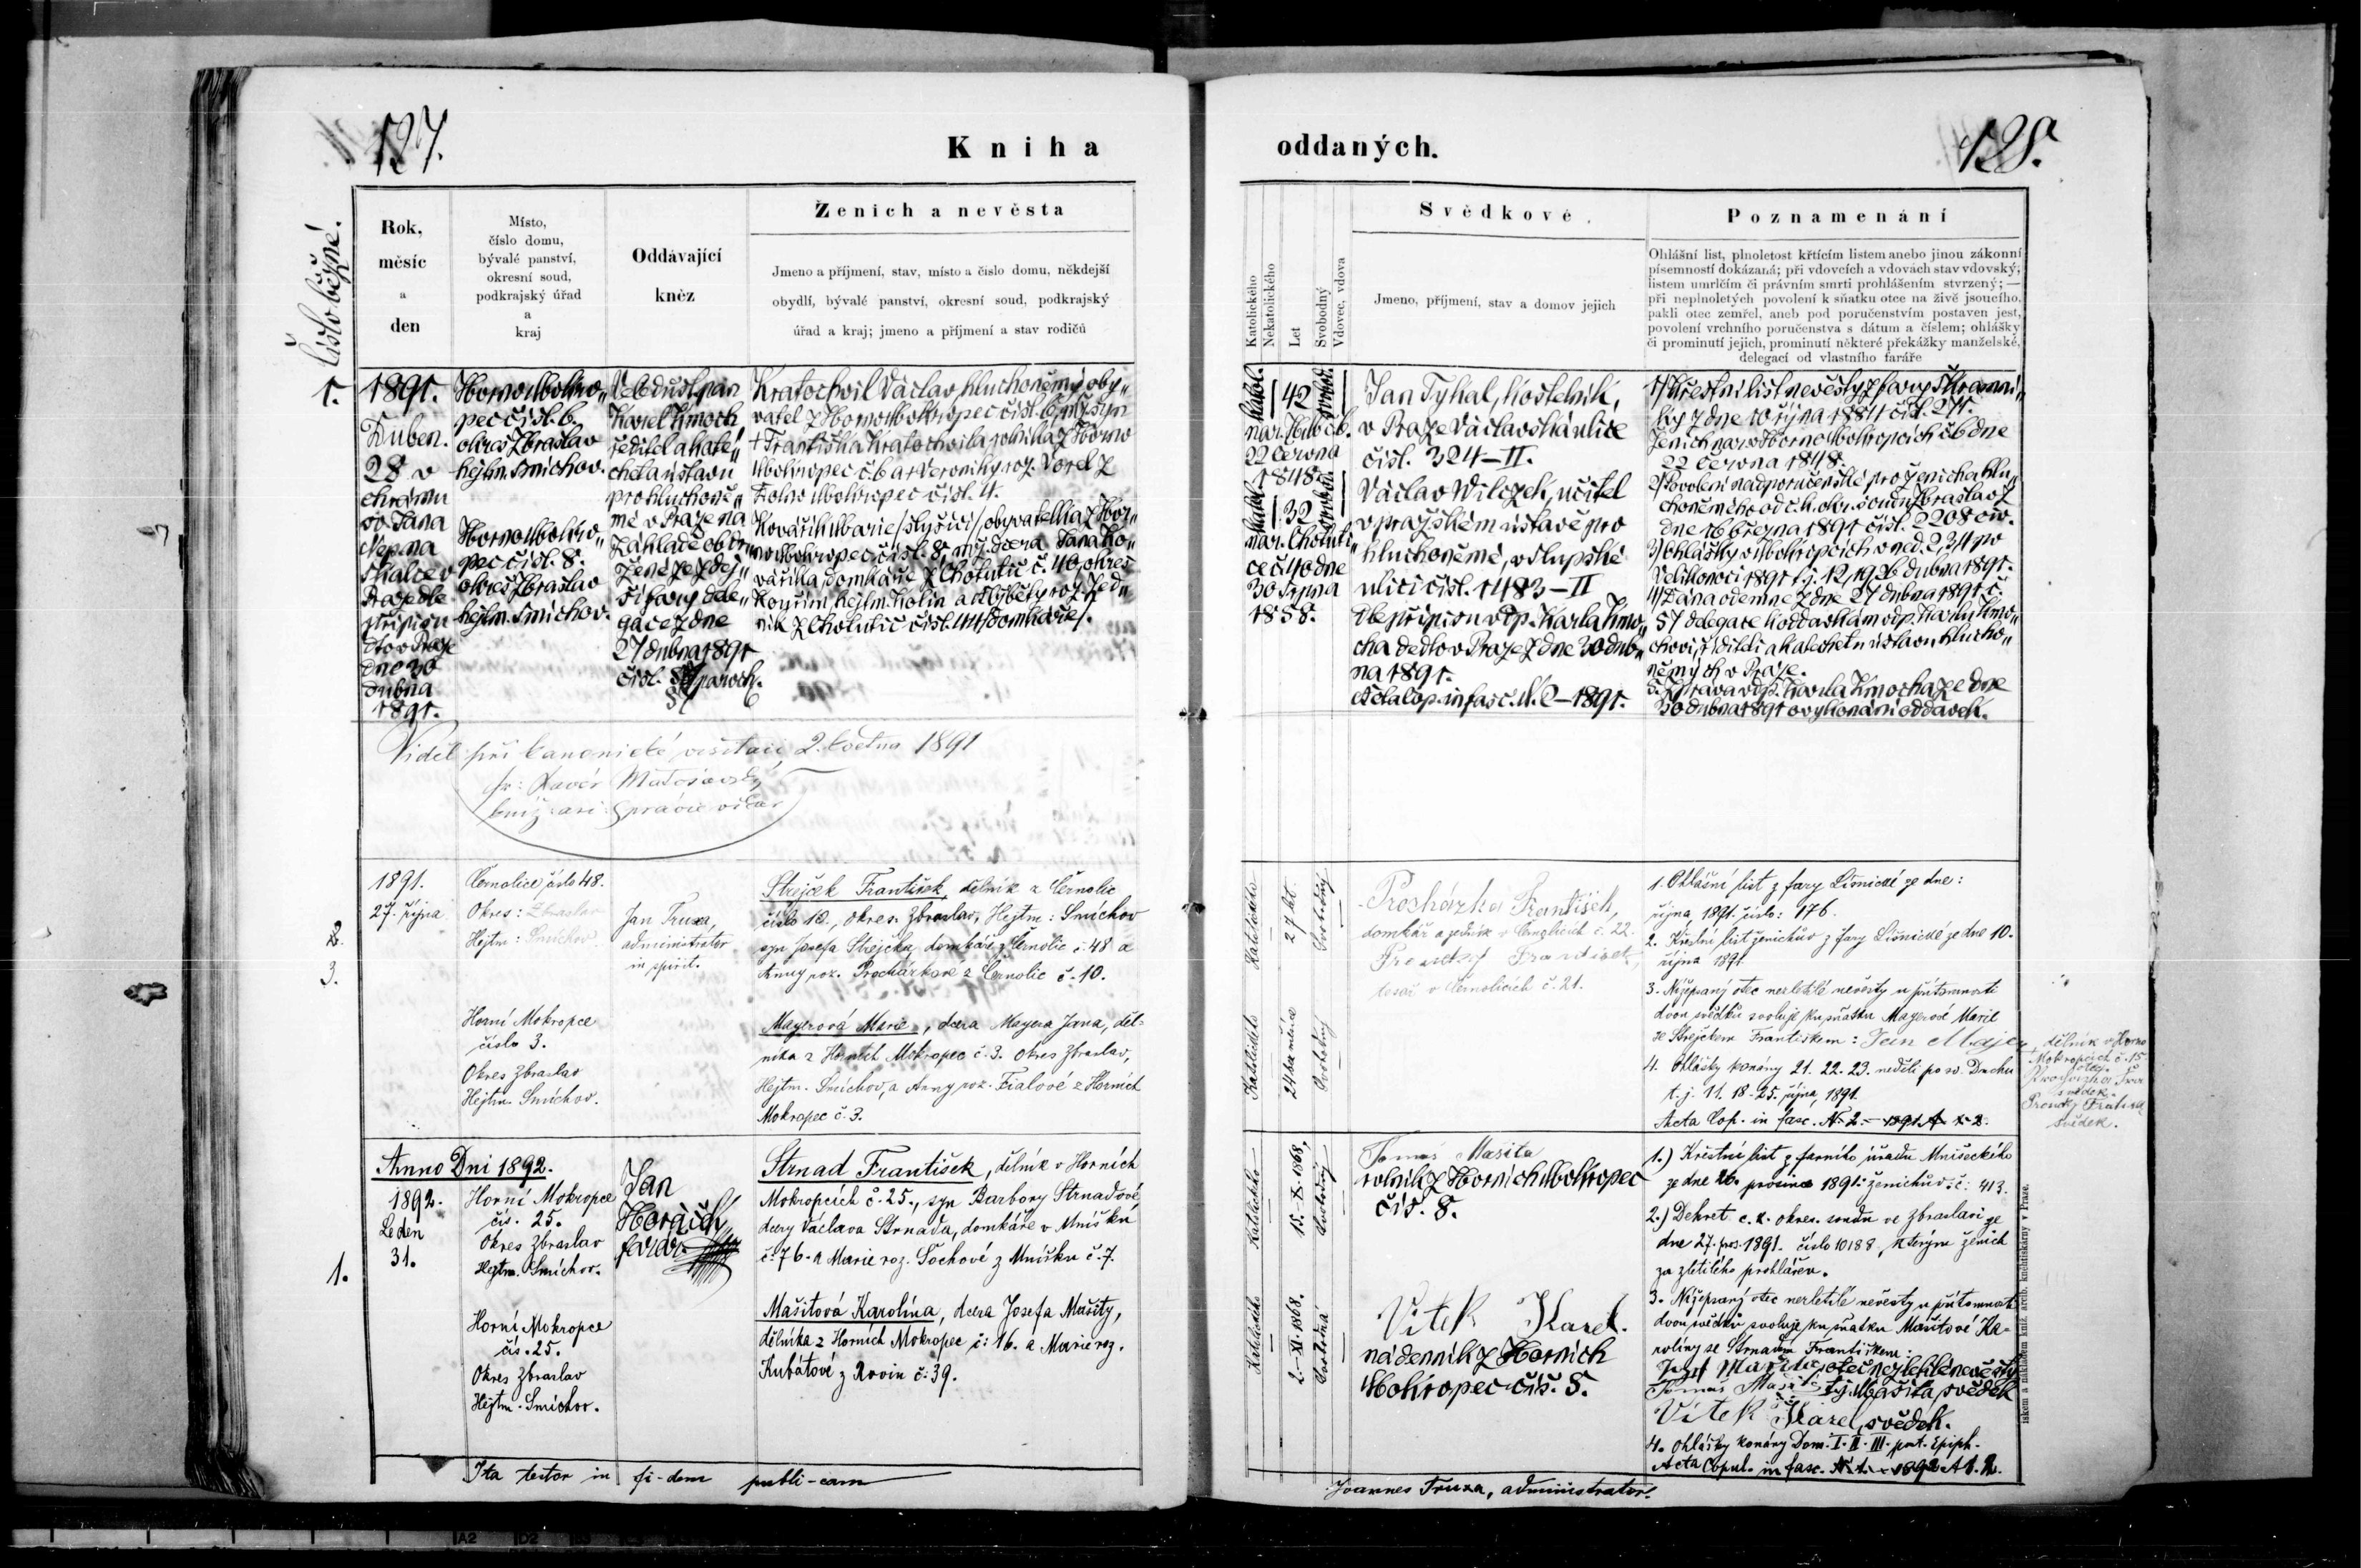 127.
Kniha
Číslo běžné.
Rok,
měsíc
a
den
Místo,
číslo domu,
bývalé panství,
okresní soud,
podkrajský úřad
a
kraj
Oddávající
kněz
Ženich a nevěsta
Jmeno a příjmení, stav, místo a číslo domu, někdejší
obydlí, bývalé panství, okresní soud, podkrajský
úřad a kraj; jmeno a příjmení a stav rodičů
1.
1891.
Duben.
28 v
chrámu
sv Jana
Nep. na
Skalce v
Praze dle
přípisu
dto v Praze
dne 30
dubna
1891.
Horno Mokro„
pec čísl. 6.
okres Zbraslav
hejtm. Smíchov.
Horno Mokro„
pec čísl. 8.
okres Zbraslav
hejtm. Smíchov.
Veledůst. pan
Karel Kmoch
ředitel a kate„
cheta ústavu
pro hluchoně„
mé v Praze na
základě obdr„
žené ze zdej„
ší fary dele„
gace z dne
27 dubna 1891
čísl. 57 paroch.
57
Kratochvíl Václav, hluchoněmý oby„
vatel z Horno Mokropec čísl. 6, mž. syn
† Františka Kratochvíla rolníka z Horno
Mokropec č. 6 a † Veroniky roz. Vorel z
Dolno Mokropec čísl. 4.
Kovařík Marie /slyšící/, obyvatelka z Hor„
no Mokropec čísl. 8, mž. dcera Jana Ko„
vaříka, domkáře z Chotutic č. 40, okres
Kouřim, hejtm. Kolín a Alžběty roz. Zed„
ník z Chotutic čísl. 44 /domkáře/.
Viděl při kanonické visitaci 2. května 1891
fr: Xavér
kníž. arci
vikář
2.
3.
1891.
27. října
Černolice číslo 48.
Okres: Zbraslav
Hejtm: Smíchov.
Horní Mokropce
číslo 3.
Okres Zbraslav
Hejtm. Smíchov.
Jan Truxa,
administrator
in spirit.
Strejček František, dělník z Černolic
číslo 10., okres. Zbraslav, Hejtm: Smíchov
syn Josefa Strejčka, domkáře z Černolic č. 48 a
Anny roz. Procházkové z Černolic č. 10.
Mayerová Marie, dcera Mayera Jana, děl-
níka z Horních Mokropec č. 3. okres Zbraslav,
Hejtm. Smíchov, a Anny roz. Fialové z Horních
Mokropec č. 3.
1.
Anno Dni 1892.
1892.
Leden
31.
Horní Mokropce
čís. 25.
Okres Zbraslav
Hejtm. Smíchov.
Horní Mokropce
čís. 25.
Okres Zbraslav
Hejtm. Smíchov.
Jan
farář
Strnad František, dělník v Horních
Mokropcích č. 25., syn Barbory Strnadové,
dcery Václava Strnada, domkáře v Mníšku
č. 76. a Marie roz. Sochové z Mníšku č. 7.
Mašitová Karolina, dcera Josefa Mašity,
dělníka z Horních Mokropec č: 16. a Marie roz.
Kubátové z Rovin č: 39.
Ita testor in fi-dem publi-cam
oddaných.
128.
Katolického
Nekatolického
Let
Svobodný
Vdovec, vdova
Svědkové.
Jmeno, příjmení, stav a domov jejich
Poznamenání
Ohlášní list, plnoletost křtícím listem anebo jinou zákonní
písemností dokázaná; při vdovcích a vdovách stav vdovský,
listem umrlčím či právním smrti prohlášením stvrzený; —
při neplnoletých povolení k sňatku otce na živě jsoucího,
pakli otec zemřel, aneb pod poručenstvím postaven jest,
povolení vrchního poručenstva s dátum a číslem; ohlášky
či prominutí jejich, prominutí některé překážky manželské,
delegací od vlastního faráře
katol.
42
svobod.
22 června
1848.
katol.
32
svobod.
nar. Chotuti„
ce č 40 dne
30 srpna
1858.
Jan Tyhal, kostelník,
v Praze Václavská ulice
čísl. 324–II.
Václav Wilczek, učitel
v pražském ústavě pro
hluchoněmé, v Lupské
ulici čísl. 1483–II
Dle přípisu vdp. Karla Kmo„
cha dedto v Praze z dne 30 dub„
na 1891.
Acta Cop. in fasc. N. 2–1891.
1/ Křestní list nevěsty z fary Skramni„
ky z dne 10 října 1884 čísl. 271.
Ženich nar. v Horno Mokropcích č 6 dne
22 června 1848.
2/ Povolení nadporučenské pro ženicha hlu„
choněmého od c. k. okr. soudu Zbraslav z
dne 16 března 1891 čísl. 2208 civ.
3/ Ohlášky v Mokropcích v ned. 2, 3, 4 po
Velikonoci 1891 t. j. 12, 19, 26 dubna 1891.
4/ Dána odemne z dne 27 dubna 1891 č.
57 delegace k oddavkám vdp. Karlu Kmo„
chovi, řediteli a katechetu ústavu hlucho„
němých v Praze.
5. Zpráva vdp. Karla Kmocha ze dne
30 dubna 1891 o vykonání oddavek.
Katolického
27 let.
Svobodný
Katolického
Svobodný
Procházka František,
domkář a zedník v Černolicích č. 22.
František,
tesař v Černolicích č. 21.
1. Ohlášní list z fary Líšnické ze dne:
října 1891. číslo: 176.
2. Křestní list ženichův z fary Líšnické ze dne 10.
října 1891.
3. Nížepsaný otec nezletilé nevěsty u přítomnosti
dvou svědků svoluje ku sňatku Mayerové Marie
se Strejčkem Františkem: Jan Majer, dělník v Horno
Mokropcích č. 15
otec.
Procházka Fra
svědek.
svědek.
4. Ohlášky konány 21. 22. 23. neděli po sv. Duchu
t. j. 11. 18. 25. října, 1891.
Acta Cop. in fasc. N. 2. – 1891
Katolického
15. X. 1868.
Svobodný
Katolického
2. XI. 1868.
Svobodná
Tomáš Mašita
rolník z Horních Mokropec
čís. 8.
Vítek Karel.
nádenník z Horních
Mokropec čís. 5.
1.) Křestní list z farního úřadu Mníšeckého
ze dne 26. prosince 1891. ženichův. č: 413.
2.) Dekret c. k. okres. soudu ve Zbraslavi ze
dne 27. pros. 1891. číslo 10188, kterým ženich
za zletilého prohlášen.
3. Nížepsaný otec nezletilé nevěsty u přítomnosti
dvou svědků svoluje ku sňatku Mašitové Ka-
roliny se Strnadem Františkem:
Josef Mašita, otec nezletilé nevěsty
Tomáš Mašita, svědek
Vítek Karel, svědek.
4. Ohlášky konány Dom. I. II. III. post. Epiph.
Acta Copul. in fasc. N. 1. – 1892
Joannes Truxa, administrator.